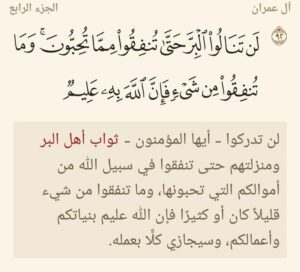 آل عمران الجزء الرابع
٩٢ لَن تَنَالُوا۟ ٱلْبِرَّ حَتَّىٰ تُنفِقُوا۟ مِمَّا تُحِبُّونَ ۚ وَمَا
تُنفِقُوا۟ مِن شَىْءٍ فَإِنَّ ٱللَّهَ بِهِۦ عَلِيمٌ
لن تدركوا - أيها المؤمنون - ثواب أهل البر
ومنزلتهم حتى تنفقوا في سبيل الله من
أموالكم التي تحبونها، وما تنفقوا من شيء
قليلاً كان أو كثيرًا فإن الله عليم بنياتكم
وأعمالكم، وسيجازي كلًّا بعمله.